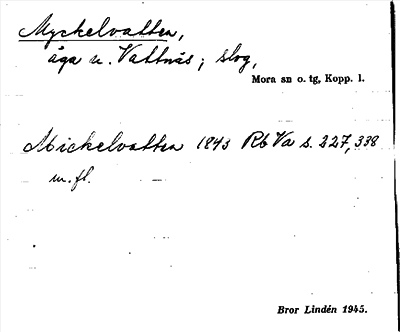 Myckelvatten,
äga u. Vattnäs; slog,
Mora sn o. tg, Kopp. l.
Mickelvatten 1843 Rb Va s. 227, 338
m. fl.
Bror Lindén 1945.